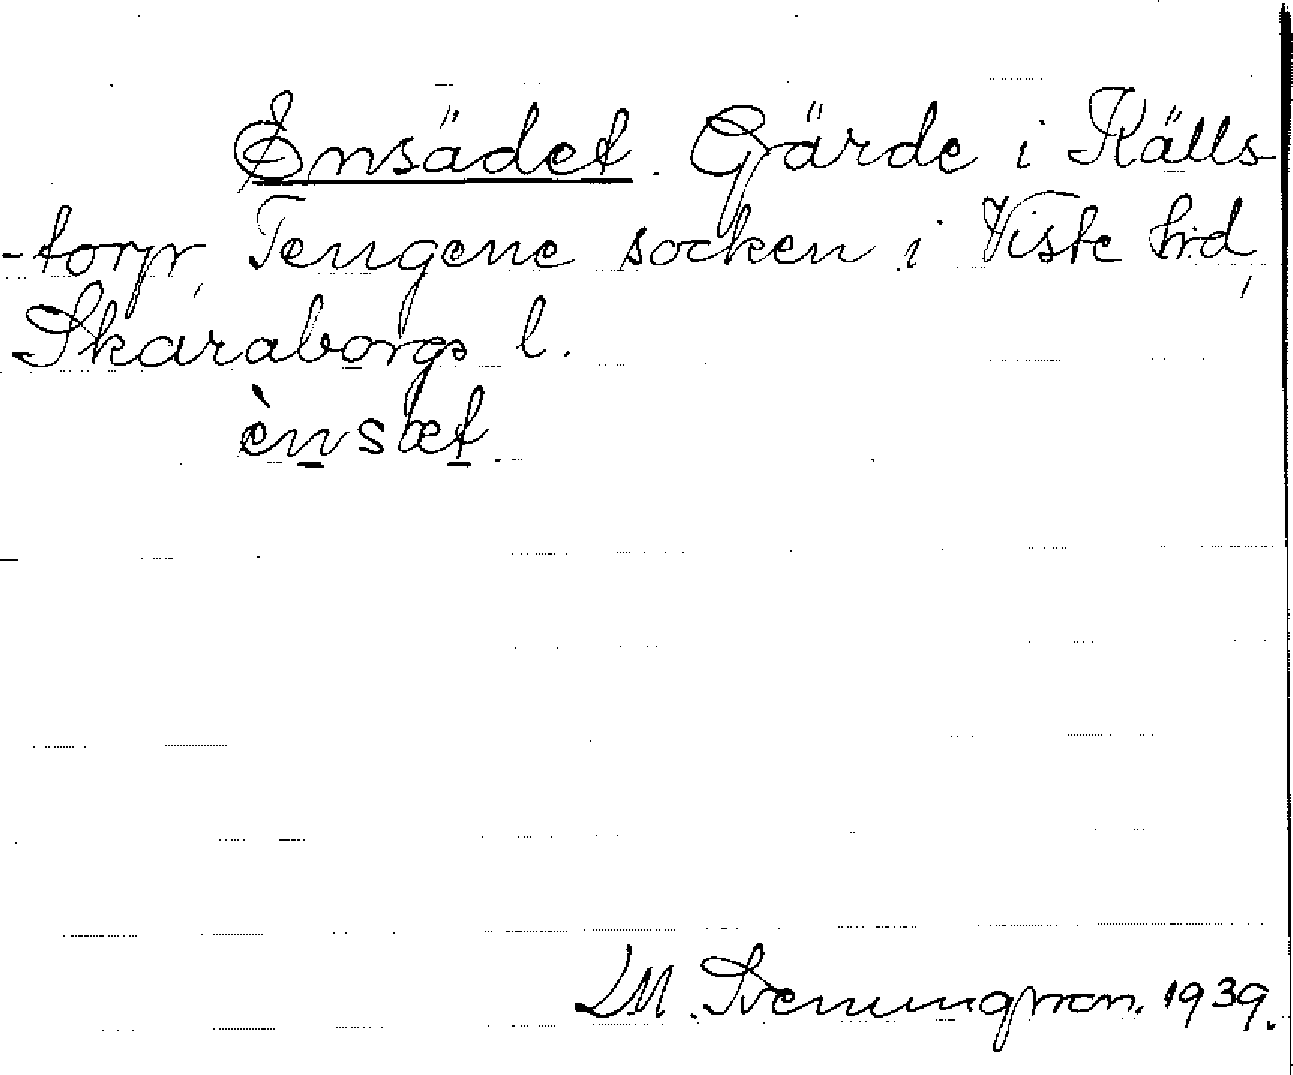 Ensädet. Gärde i Källs
-torp, Tengene socken i Viste hrd,
Skaraborgs l.
ènsæt.
LM. Svenungsson. 1939.